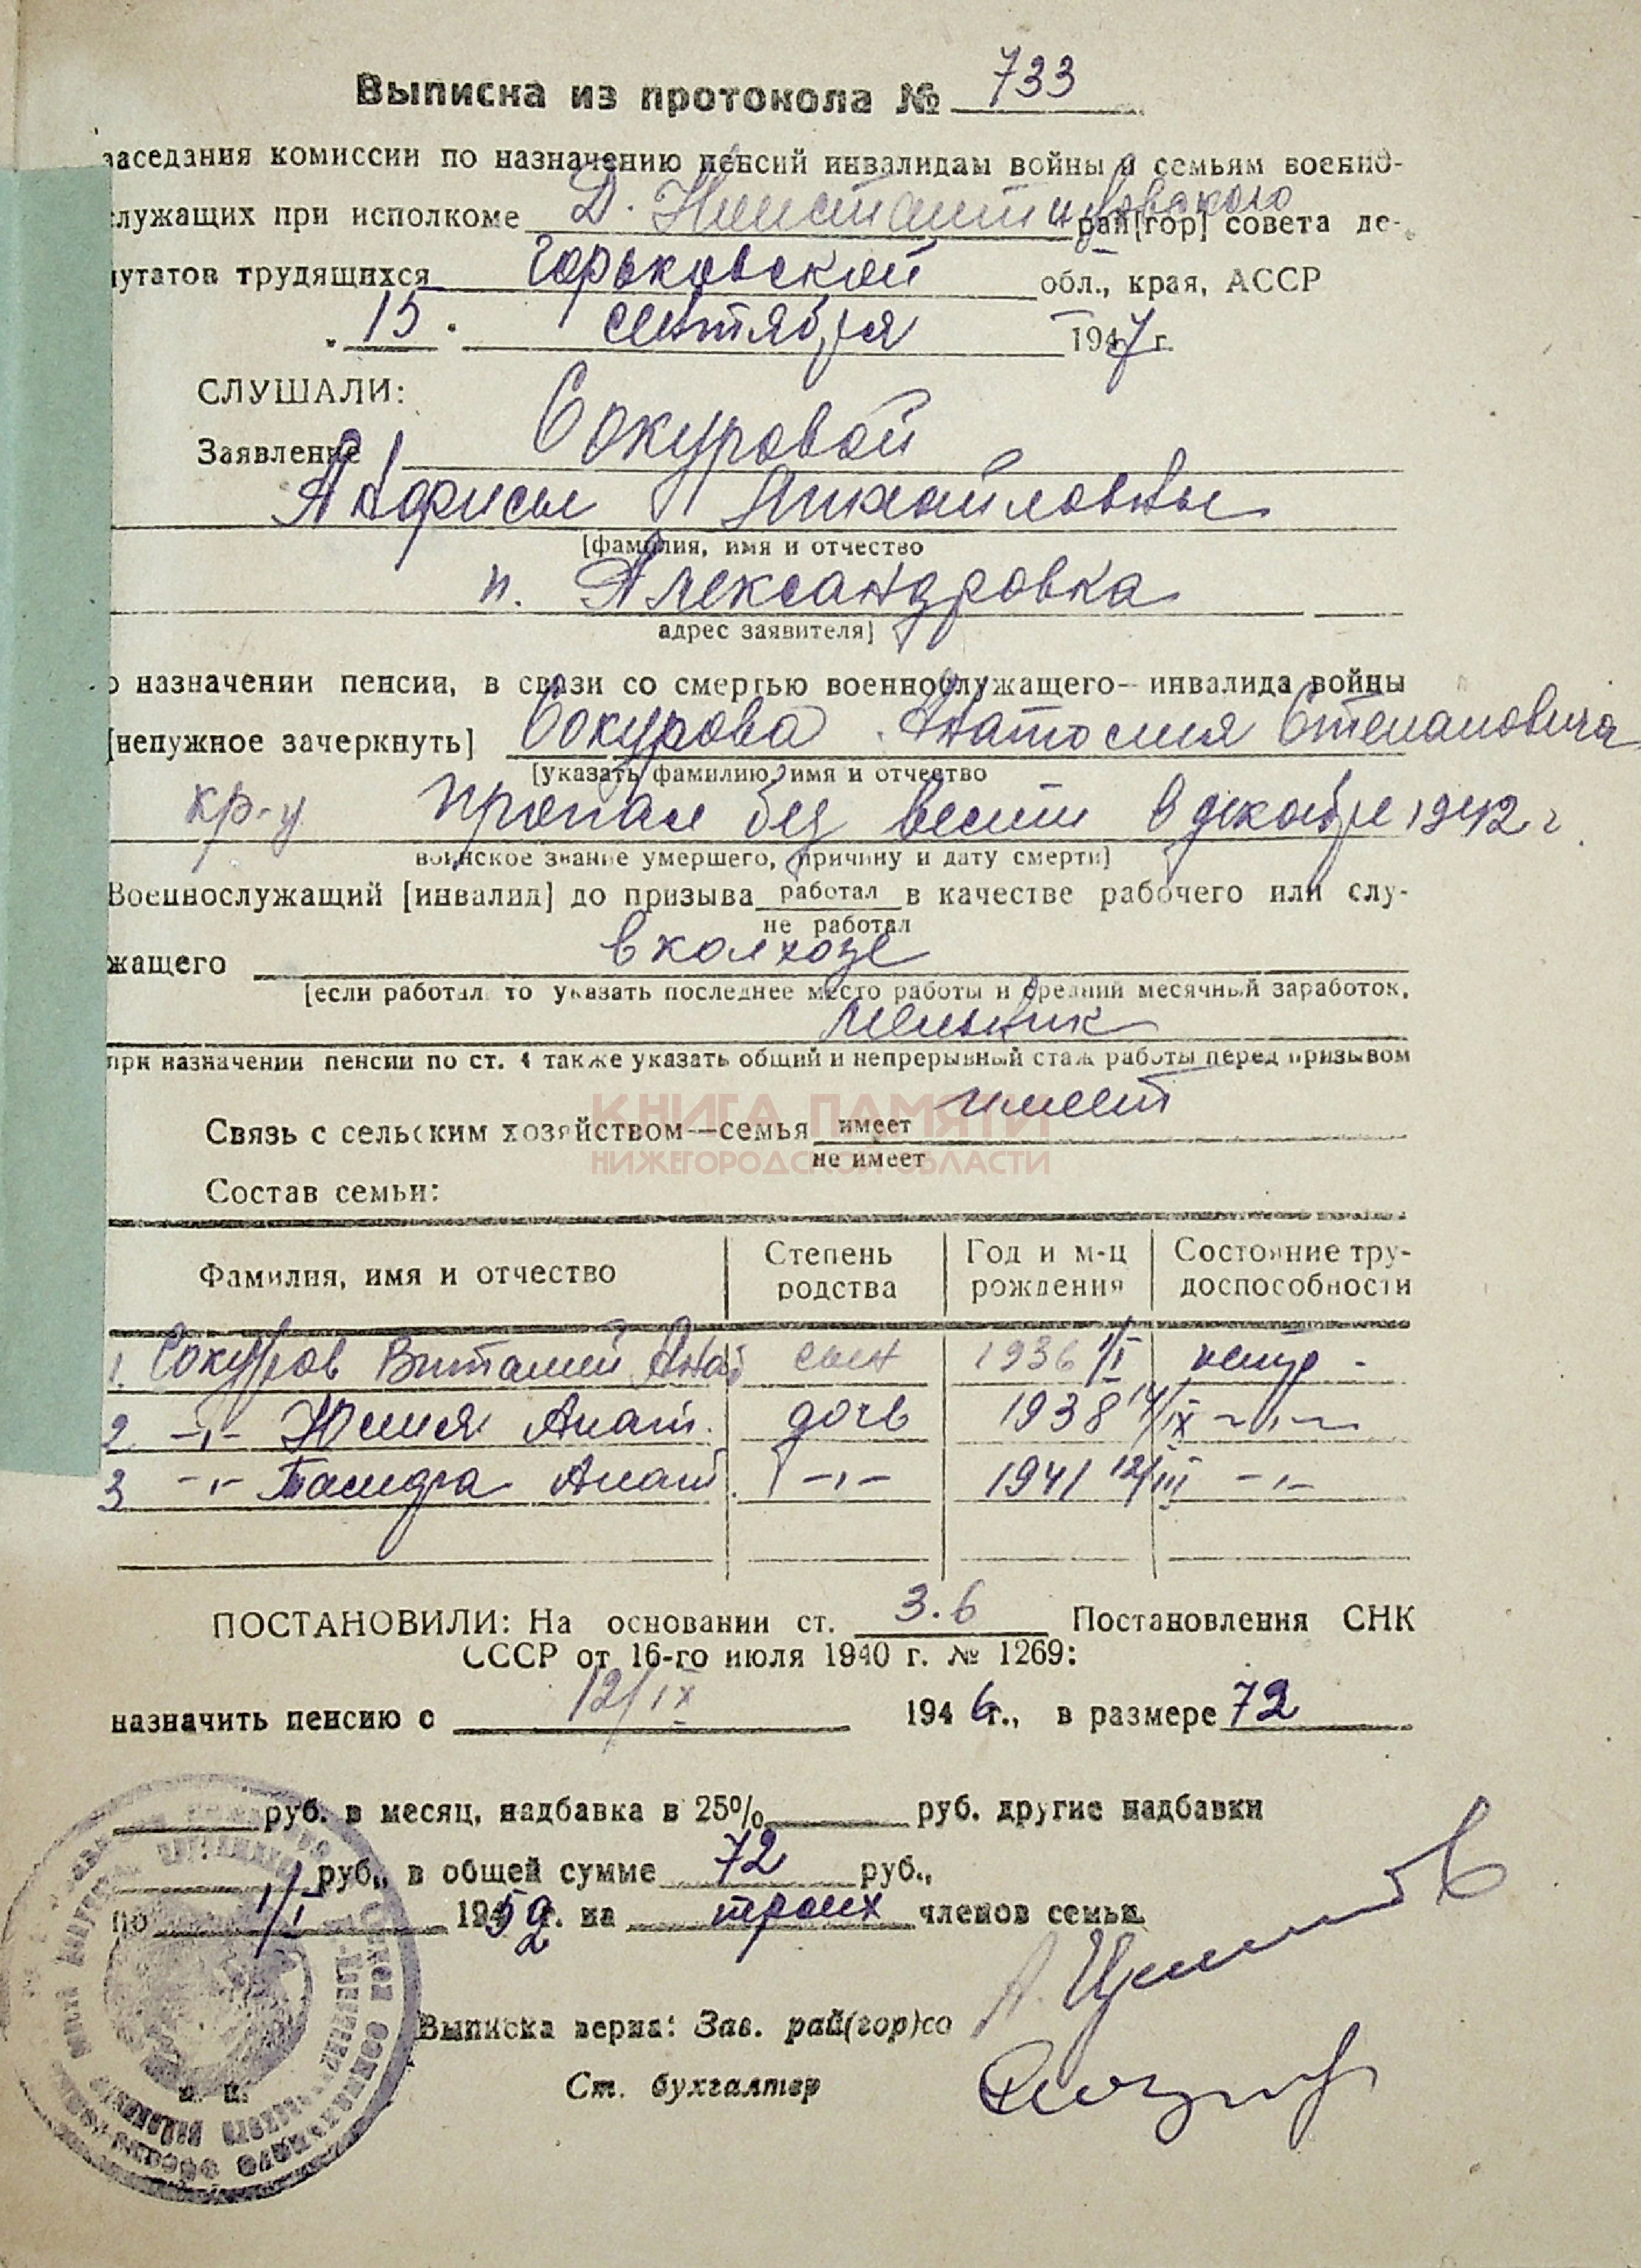 Выписка из протокола № 733
заседания комиссии по назначению пенсий инвалидам войны и семьям военно-
служащих при исполкоме Д. Константиновского рай[гор] совета де-
путатов трудящихся Горьковской обл., края, АССР
15 сентября 1947 г.
СЛУШАЛИ:
Заявление Сокуровой
Анфисы Михайловны
[фамилия, имя и отчество
п. Александровка
адрес заявителя]
о назначении пенсии, в связи со смертью военнослужащего—инвалида войны
[ненужное зачеркнуть] Сокурова Анатолия Степановича
[указать фамилию, имя и отчество
кр-ц пропал без вести в декабре 1942 г.
воинское звание умершего, причину и дату смерти]
Военнослужащий [инвалид] до призыва работал в качестве рабочего или слу-
не работал
жащего в колхозе
[если работал то указать последнее место работы и средний месячный заработок,
мельник
при назначении пенсии по ст. 4 также указать общий и непрерывный стаж работы перед призывом
имеет
КНИГА ПАМЯТИ
Связь с сельским хозяйством—семья имеет
не имеет
НИЖЕГОРОДСКОЙ ОБЛАСТИ
Состав семьи:
Фамилия, имя и отчество Степень родства Год и м-ц рождения Состояние тру-доспособности
1. Сокуров Виталий Анат сын 1936 1/I нетр -
2 -"- Юлия Анат. дочь 1938 14/IX -"-
3 -"- Тамара Анат. -"- 1941 12/III -"-
ПОСТАНОВИЛИ: На основании ст. 3.6 Постановления СНК
СССР от 16-го июля 1940 г. № 1269:
назначить пенсию с 12/IX 1946 г., в размере 72
руб. в месяц, надбавка в 25% руб. другие надбавки
руб., в общей сумме 72 руб.,
по 1/I 1952 г. на троих членов семьи.
Выписка верна: Зав. рай(гор)со
Ст. бухгалтер
м. п.